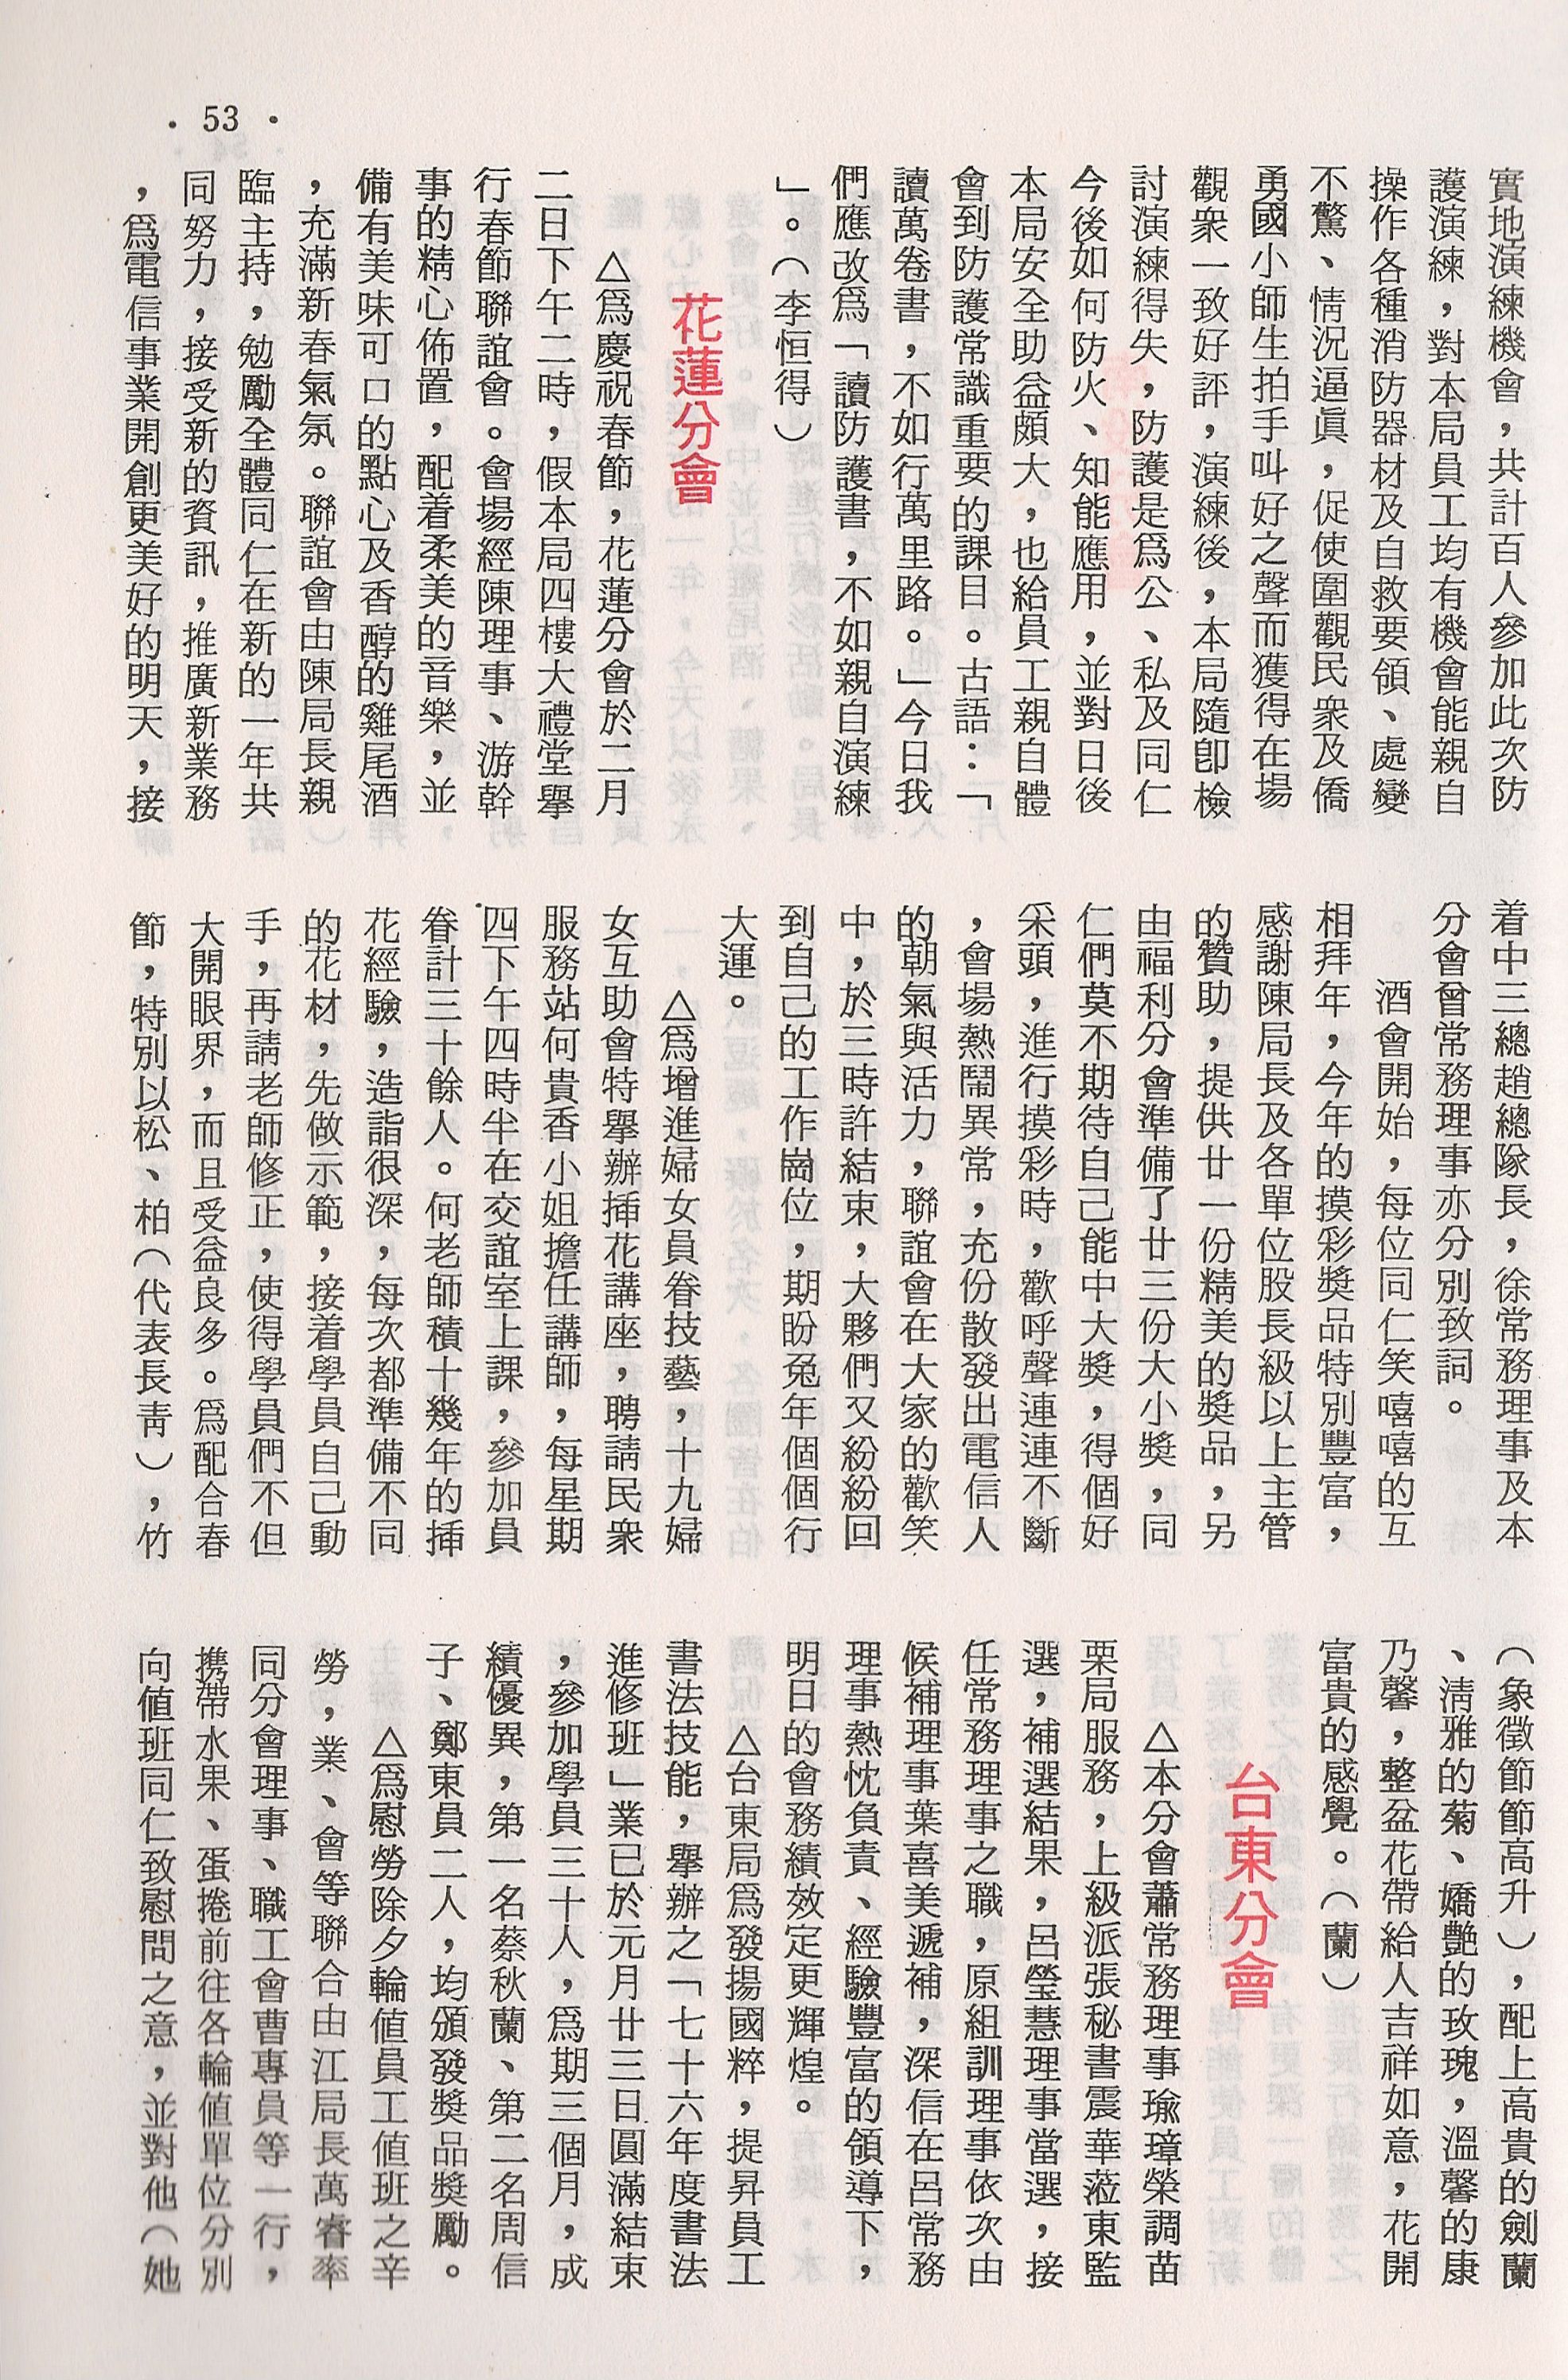 · 53 ·
實地演練機會，共計百人參加此次防
護演練，對本局員工均有機會能親自
操作各種消防器材及自救要領、處變
不驚、情況逼眞，促使圍觀民衆及僑
勇國小師生拍手叫好之聲而獲得在場
觀衆一致好評，演練後，本局隨卽檢
討演練得失，防護是爲公、私及同仁
今後如何防火、知能應用，並對日後
本局安全助益頗大，也給員工親自體
會到防護常識重要的課目。古語：「
讀萬卷書，不如行萬里路。」今日我
們應改爲「讀防護書，不如親自演練
」。（李恒得）
花蓮分會
△爲慶祝春節，花蓮分會於二月
二日下午二時，假本局四樓大禮堂舉
行春節聯誼會。會場經陳理事、游幹
事的精心佈置，配着柔美的音樂，並
備有美味可口的點心及香醇的雞尾酒
，充滿新春氣氛。聯誼會由陳局長親
臨主持，勉勵全體同仁在新的一年共
同努力，接受新的資訊，推廣新業務
，爲電信事業開創更美好的明天，接
着中三總趙總隊長，徐常務理事及本
分會曾常務理事亦分別致詞。
酒會開始，每位同仁笑嘻嘻的互
相拜年，今年的摸彩獎品特別豐富，
感謝陳局長及各單位股長級以上主管
的贊助，提供廿一份精美的獎品，另
由福利分會準備了廿三份大小獎，同
仁們莫不期待自己能中大獎，得個好
采頭，進行摸彩時，歡呼聲連連不斷
，會場熱鬧異常，充份散發出電信人
的朝氣與活力，聯誼會在大家的歡笑
中，於三時許結束，大夥們又紛紛回
到自己的工作崗位，期盼兔年個個行
大運。
△爲增進婦女員眷技藝，十九婦
女互助會特舉辦挿花講座，聘請民衆
服務站何貴香小姐擔任講師，每星期
四下午四時半在交誼室上課，參加員
眷計三十餘人。何老師積十幾年的挿
花經驗，造詣很深，每次都準備不同
的花材，先做示範，接着學員自己動
手，再請老師修正，使得學員們不但
大開眼界，而且受益良多。爲配合春
節，特別以松、柏（代表長靑），竹
（象徵節節高升），配上高貴的劍蘭
、淸雅的菊、嬌艷的玫瑰，溫馨的康
乃馨，整盆花帶給人吉祥如意，花開
富貴的感覺。（蘭）
台東分會
△本分會蕭常務理事瑜璋榮調苗
栗局服務，上級派張秘書震華蒞東監
選，補選結果，呂瑩慧理事當選，接
任常務理事之職，原組訓理事依次由
候補理事葉喜美遞補，深信在呂常務
理事熱忱負責、經驗豐富的領導下，
明日的會務績效定更輝煌。
△台東局爲發揚國粹，提昇員工
書法技能，舉辦之「七十六年度書法
進修班」業已於元月廿三日圓滿結束
，參加學員三十人，爲期三個月，成
績優異，第一名蔡秋蘭、第二名周信
子、鄭東員二人，均頒發獎品獎勵。
△爲慰勞除夕輪値員工値班之辛
勞，業、會等聯合由江局長萬睿率
同分會理事、職工會曹專員等一行，
携帶水果、蛋捲前往各輪値單位分別
向値班同仁致慰問之意，並對他（她